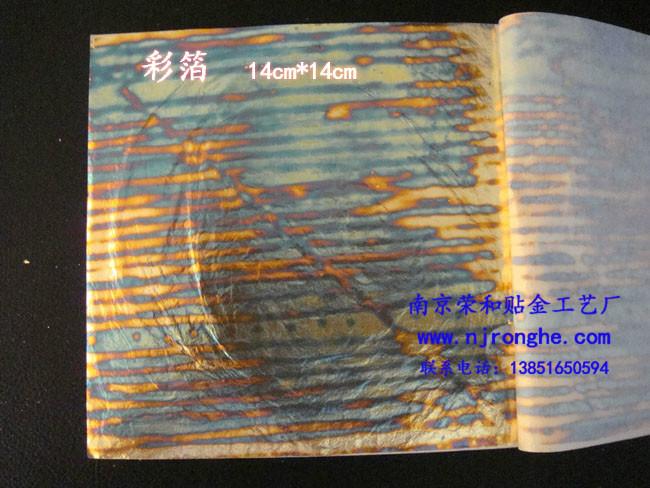 彩箔 14cm*14cm
南京荣和贴金工艺厂
www.njronghe.com
联系电话：13851650594